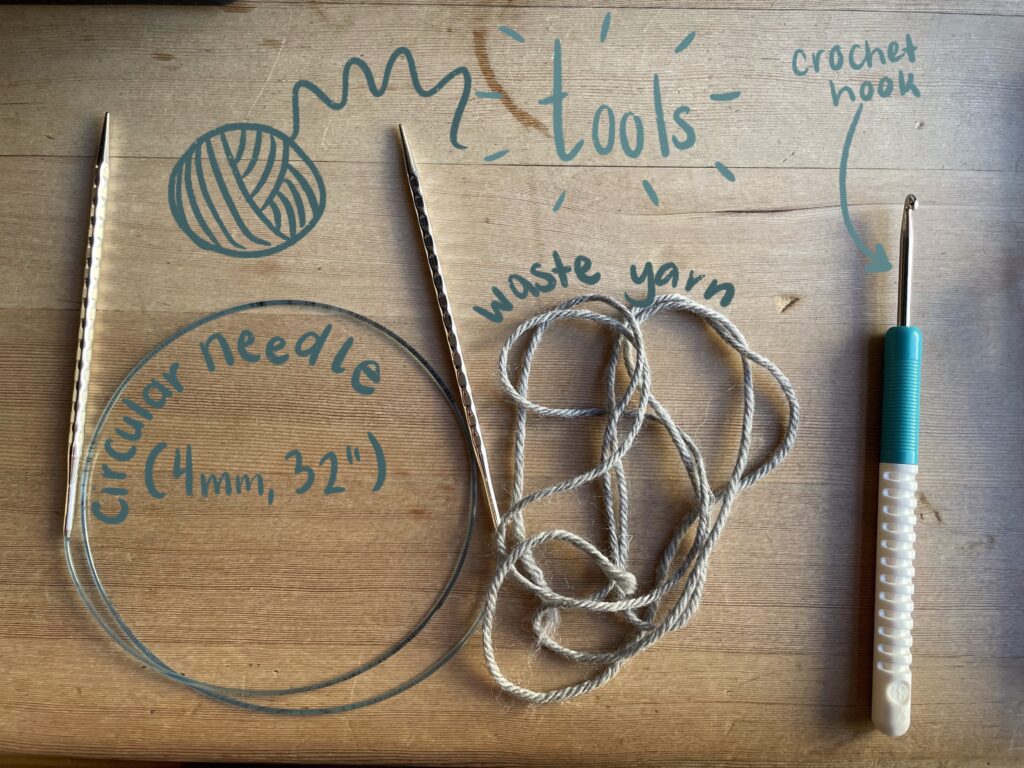 tools
crochet
hook
waste yarn
circular needle
(4mm, 32")